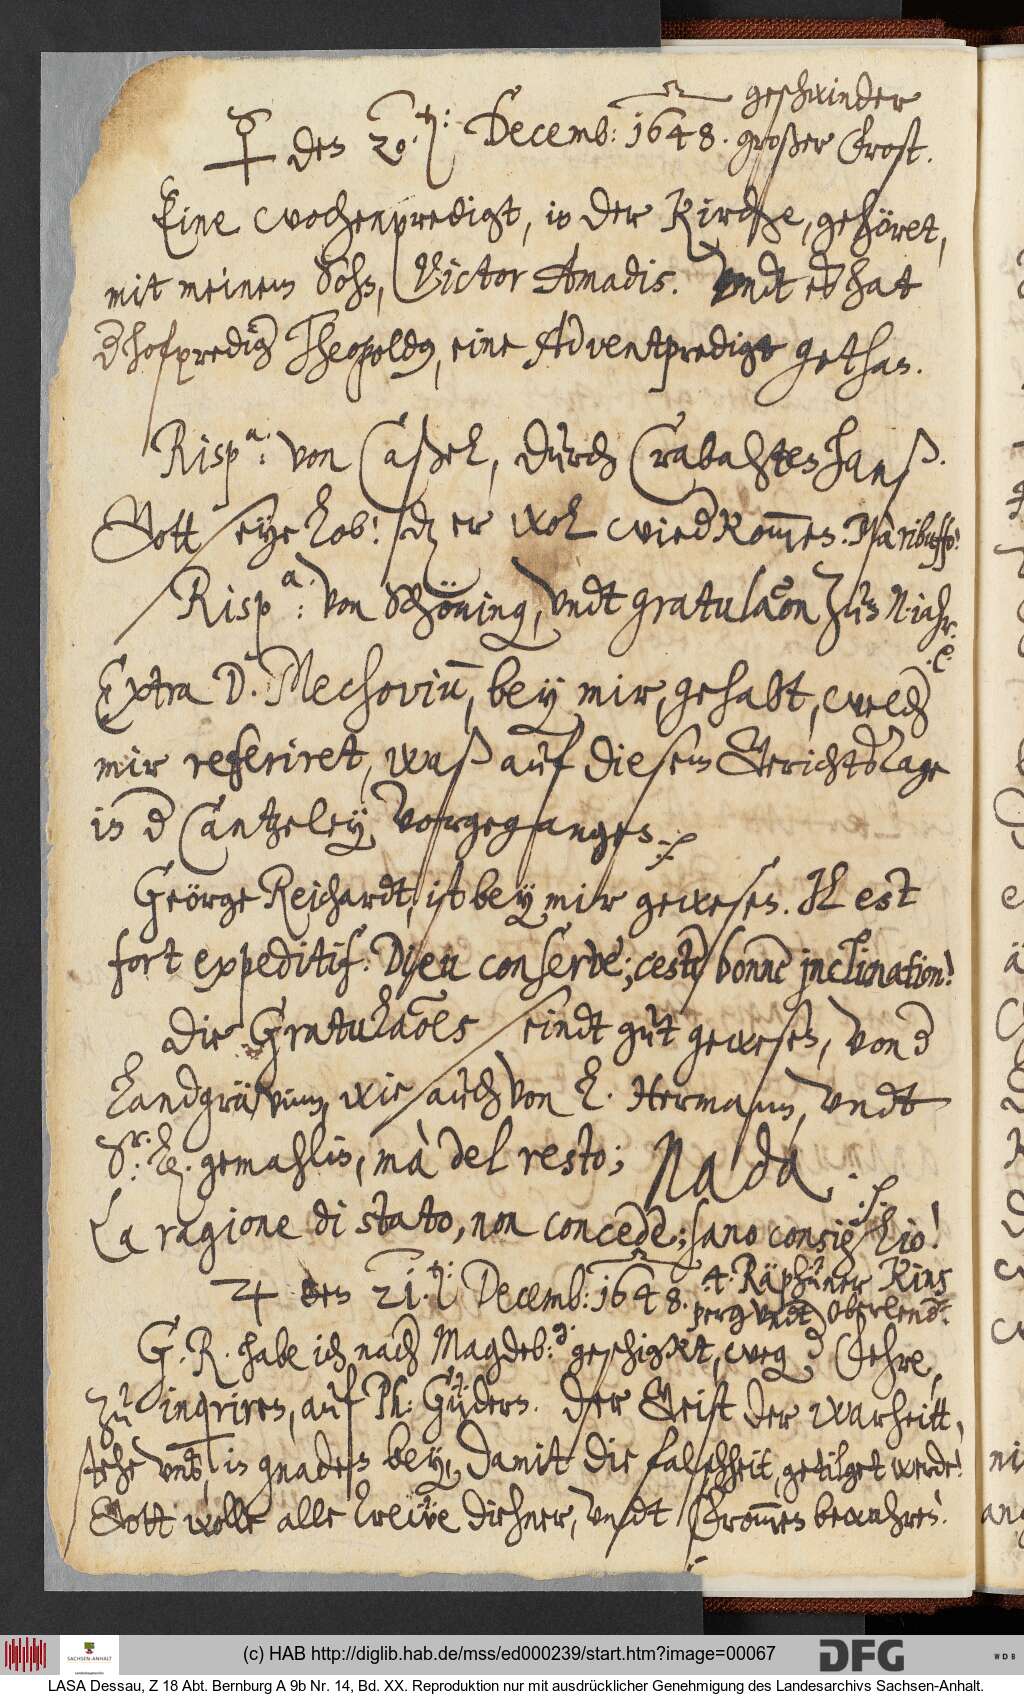 geschwinder
☿ den 20.ten: Decemb: 1648. großer Frost.
Eine wochenpredigt, in der Kirche, gehöret,
mit meinem Sohn, Victor Amadis. Vndt es hat
d hofpredig Theopoldus, eine Adventpredigt gethan.
Risp.a: von Caßel, durch Crabahten hanß.
Gott seye lob! dz er wol wiedkommen.
Risp.a: von Schöning, Vndt gratulaon zum N. iahr.
Extra D. Mechovium, bey mir, gehabt, welch
mir referiret, waß auf diesem Gerichtstage
in d Cantzeley, Vorgegangen.
Geörge Reichardt, ist bey mir gewesen. Il est
fort expeditif. Dieu conserve; ceste bonne inclination!
Die Gratulaoes seindt gut gewesen, von d
Landgräfinn, wie auch von L. Hermann, Vndt
Sr: Ld. gemahlin, mà del resto; Nada.
La ragione di stato, non concede; sano consiglio!
♃ den 21.ten: Decemb: 1648. 4. Räphüner Kins
perg vndt Oberlend:
G. R. habe ich nach Magdeb:g geschigkt, weg d Lehre,
zu inquiren, auf Ph: Güdern. Der Geist der warheitt,
stehe vnß, in gnaden bey, Damit die falschheit, getilget werde!
Gott wolle alle trewe diehner, Vndt Frommen bewahren!
(c) HAB http://diglib.hab.de/mss/ed000239/start.htm?image=00067
SACHSEN-ANHALT
DFG
WDB
LASA Dessau, Z 18 Abt. Bernburg A 9b Nr. 14, Bd. XX. Reproduktion nur mit ausdrücklicher Genehmigung des Landesarchivs Sachsen-Anhalt.